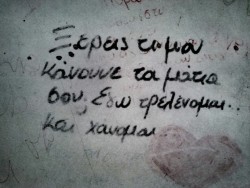 Ξερεις τι μου
κανουνε τα ματια
σου. Εδω τρελενομαι...
και χανομαι...